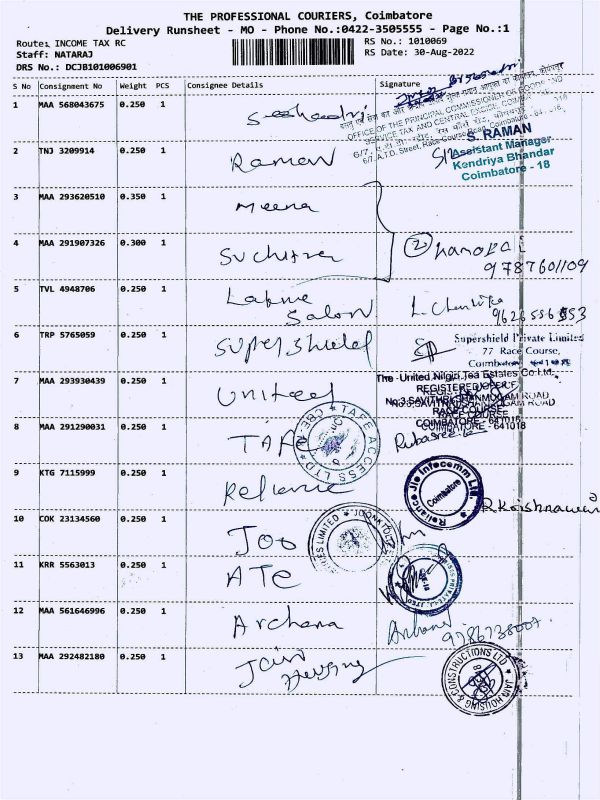 THE PROFESSIONAL COURIERS, Coimbatore
Delivery Runsheet - MO - Phone No.:0422-3505555 - Page No.:1
Route: INCOME TAX RC
RS No.: 1010069
Staff: NATARAJ
RS Date: 30-Aug-2022
DRS No.: DCJB101006901
S No Consignment No Weight PCS Consignee Details Signature
OFFICE OF THE PRINCIPAL COMMISSIONER OF GOODS AND
SERVICE TAX AND CENTRAL EXCISE, COIMBATORE
6/7, A.T.D. Street, Race Course Road, Coimbatore - 641 018.
1 MAA 568043675 0.250 1
S. RAMAN
Assistant Manager
Kendriya Bhandar
Coimbatore - 18
2 TNJ 3209914 0.250 1 Raman
3 MAA 293620510 0.350 1 Meena
4 MAA 291907326 0.300 1 Suchitra
9787601109
5 TVL 4948706 0.250 1 Lakme
Salon
6 TRP 5765059 0.250 1 Supershield
Supershield Private Limited
77 Race Course,
7 MAA 293930439 0.250 1 United
The United Nilgiri Tea Estates Co.Ltd.
No.3 SAVITHRI SHANMUGAM ROAD
RACE COURSE
COIMBATORE - 641018
8 MAA 291290031 0.250 1 TAFE
TAFE ACCESS LTD
9 KTG 7115999 0.250 1 Reliance
Reliance Jio Infocomm Ltd.
Coimbatore
10 COK 23134560 0.250 1 Joo
11 KRR 5563013 0.250 1 ATE
12 MAA 561646996 0.250 1 Archana
Archana
13 MAA 292482180 0.250 1 Jain
Housing
JAIN HOUSING & CONSTRUCTIONS LTD